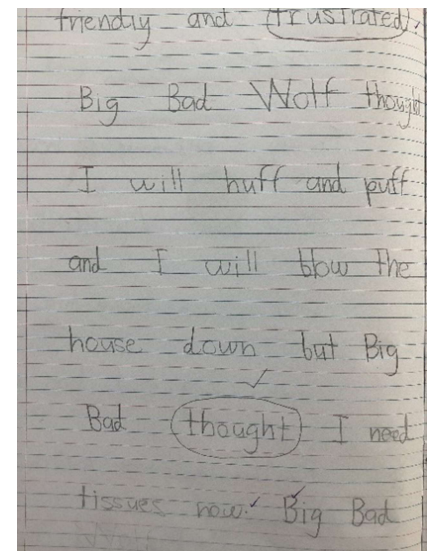 friendly and (frustrated).
Big Bad Wolf thought
I will huff and puff
and I will blow the
house down but Big
Bad thought I need
tissues now. Big Bad